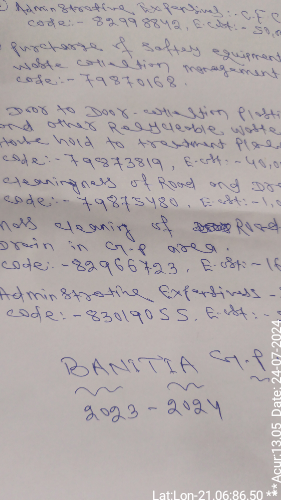 Administrative Expertises :- C.F C
code:- 82998842, E.cost:- 50,
purchase of Saftey equipment
waste collection management
code:- 79870168.
Door to Door collection plasti
and other Relyclerable waste
House hold to treatment place
code:- 79873819, E-cost:- 40,00
cleaningness of Road and Dra
code:- 79875480, E-cost:- 1,0
ness cleaning of Road
Drain in G.P area.
code:- 82966723, E-cost:- 16
Administrative Expertises -
code:- 83019055. E.cost:-
BANITIA G.P
2023 - 2024
Lat:Lon-21.06:86.50 ***Acur:13.05 Date: 24-07-2024